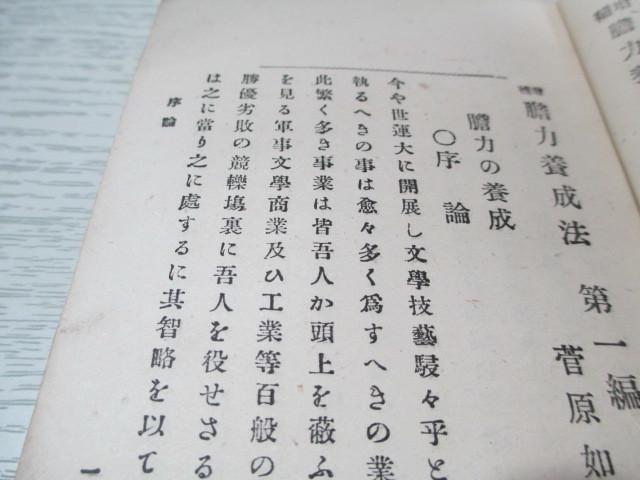 增補膽力養成法 第一編
菅原如
膽力の養成
〇序論
今や世運大に開展し文學技藝駸々乎と
執るへきの事は愈々多く爲すへきの業
此繁く多き事業は皆吾人か頭上を蔽ふ
を見る軍事文學商業及ひ工業等百般の
勝優劣敗の競轢塲裏に吾人を役せさる
は之に當り之に處するに其智略を以て
序論
一